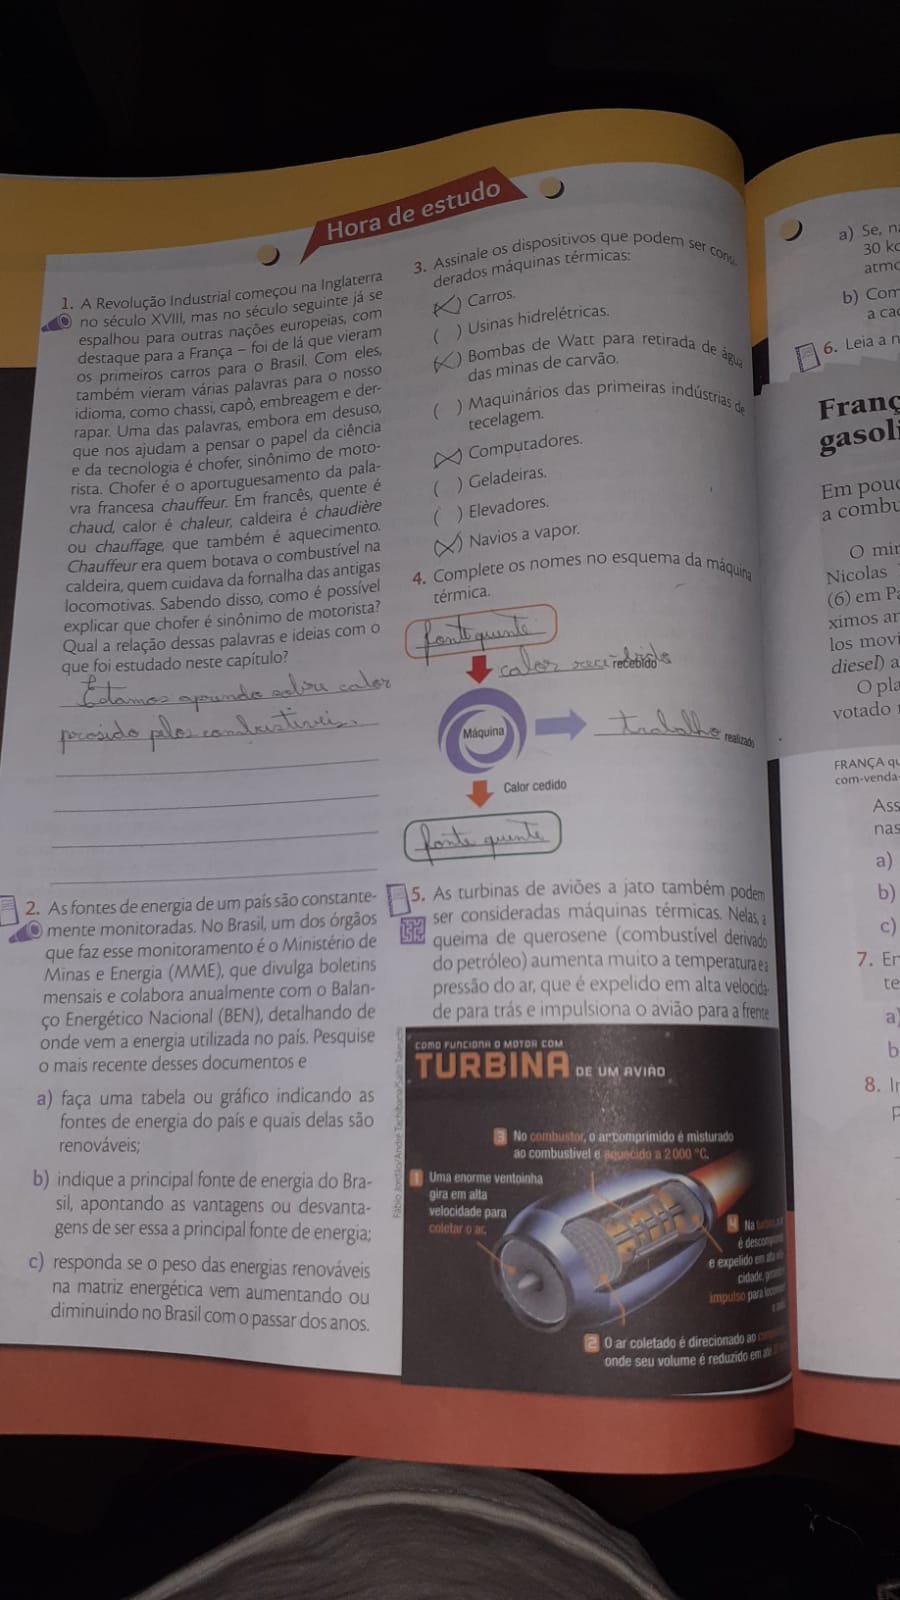 Hora de estudo
1. A Revolução Industrial começou na Inglaterra
no século XVIII, mas no século seguinte já se
espalhou para outras nações europeias, com
destaque para a França – foi de lá que vieram
os primeiros carros para o Brasil. Com eles,
também vieram várias palavras para o nosso
idioma, como chassi, capô, embreagem e der-
rapar. Uma das palavras, embora em desuso,
que nos ajudam a pensar o papel da ciência
e da tecnologia é chofer, sinônimo de moto-
rista. Chofer é o aportuguesamento da pala-
vra francesa chauffeur. Em francês, quente é
chaud, calor é chaleur, caldeira é chaudière
ou chauffage, que também é aquecimento.
Chauffeur era quem botava o combustível na
caldeira, quem cuidava da fornalha das antigas
locomotivas. Sabendo disso, como é possível
explicar que chofer é sinônimo de motorista?
Qual a relação dessas palavras e ideias com o
que foi estudado neste capítulo?
Estamos sobre calor
pelos combustiveis.
2. As fontes de energia de um país são constante-
mente monitoradas. No Brasil, um dos órgãos
que faz esse monitoramento é o Ministério de
Minas e Energia (MME), que divulga boletins
mensais e colabora anualmente com o Balan-
ço Energético Nacional (BEN), detalhando de
onde vem a energia utilizada no país. Pesquise
o mais recente desses documentos e
a) faça uma tabela ou gráfico indicando as
fontes de energia do país e quais delas são
renováveis;
b) indique a principal fonte de energia do Bra-
sil, apontando as vantagens ou desvanta-
gens de ser essa a principal fonte de energia;
c) responda se o peso das energias renováveis
na matriz energética vem aumentando ou
diminuindo no Brasil com o passar dos anos.
3. Assinale os dispositivos que podem ser cons
derados máquinas térmicas:
(X) Carros.
( ) Usinas hidrelétricas.
(X) Bombas de Watt para retirada de água
das minas de carvão.
( ) Maquinários das primeiras indústrias de
tecelagem.
(X) Computadores.
( ) Geladeiras.
( ) Elevadores.
(X) Navios a vapor.
4. Complete os nomes no esquema da máquina
térmica.
fonte quente
calor recebido
Máquina
trabalho realizado
Calor cedido
fonte quente
5. As turbinas de aviões a jato também podem
ser consideradas máquinas térmicas. Nelas, a
queima de querosene (combustível derivado
do petróleo) aumenta muito a temperatura e a
pressão do ar, que é expelido em alta velocida-
de para trás e impulsiona o avião para a frente
COMO FUNCIONA O MOTOR COM
TURBINA DE UM AVIÃO
3 No combustor, o ar comprimido é misturado
ao combustível e aquecido a 2 000 °C.
1 Uma enorme ventoinha
gira em alta
velocidade para
coletar o ar.
4 Na
é
e expelido em
cidade,
impulso para
2 O ar coletado é direcionado ao
onde seu volume é reduzido em
a) Se, n
30 k
atm
b) Com
a ca
6. Leia a n
Franç
gasoli
Em pouc
a combu
O min
Nicolas
(6) em Pa
ximos an
los movi
diesel) a
O pla
votado
FRANÇA qu
com-venda-
Ass
nas
a)
b)
c)
7. En
te
a)
b
8. Ir
p